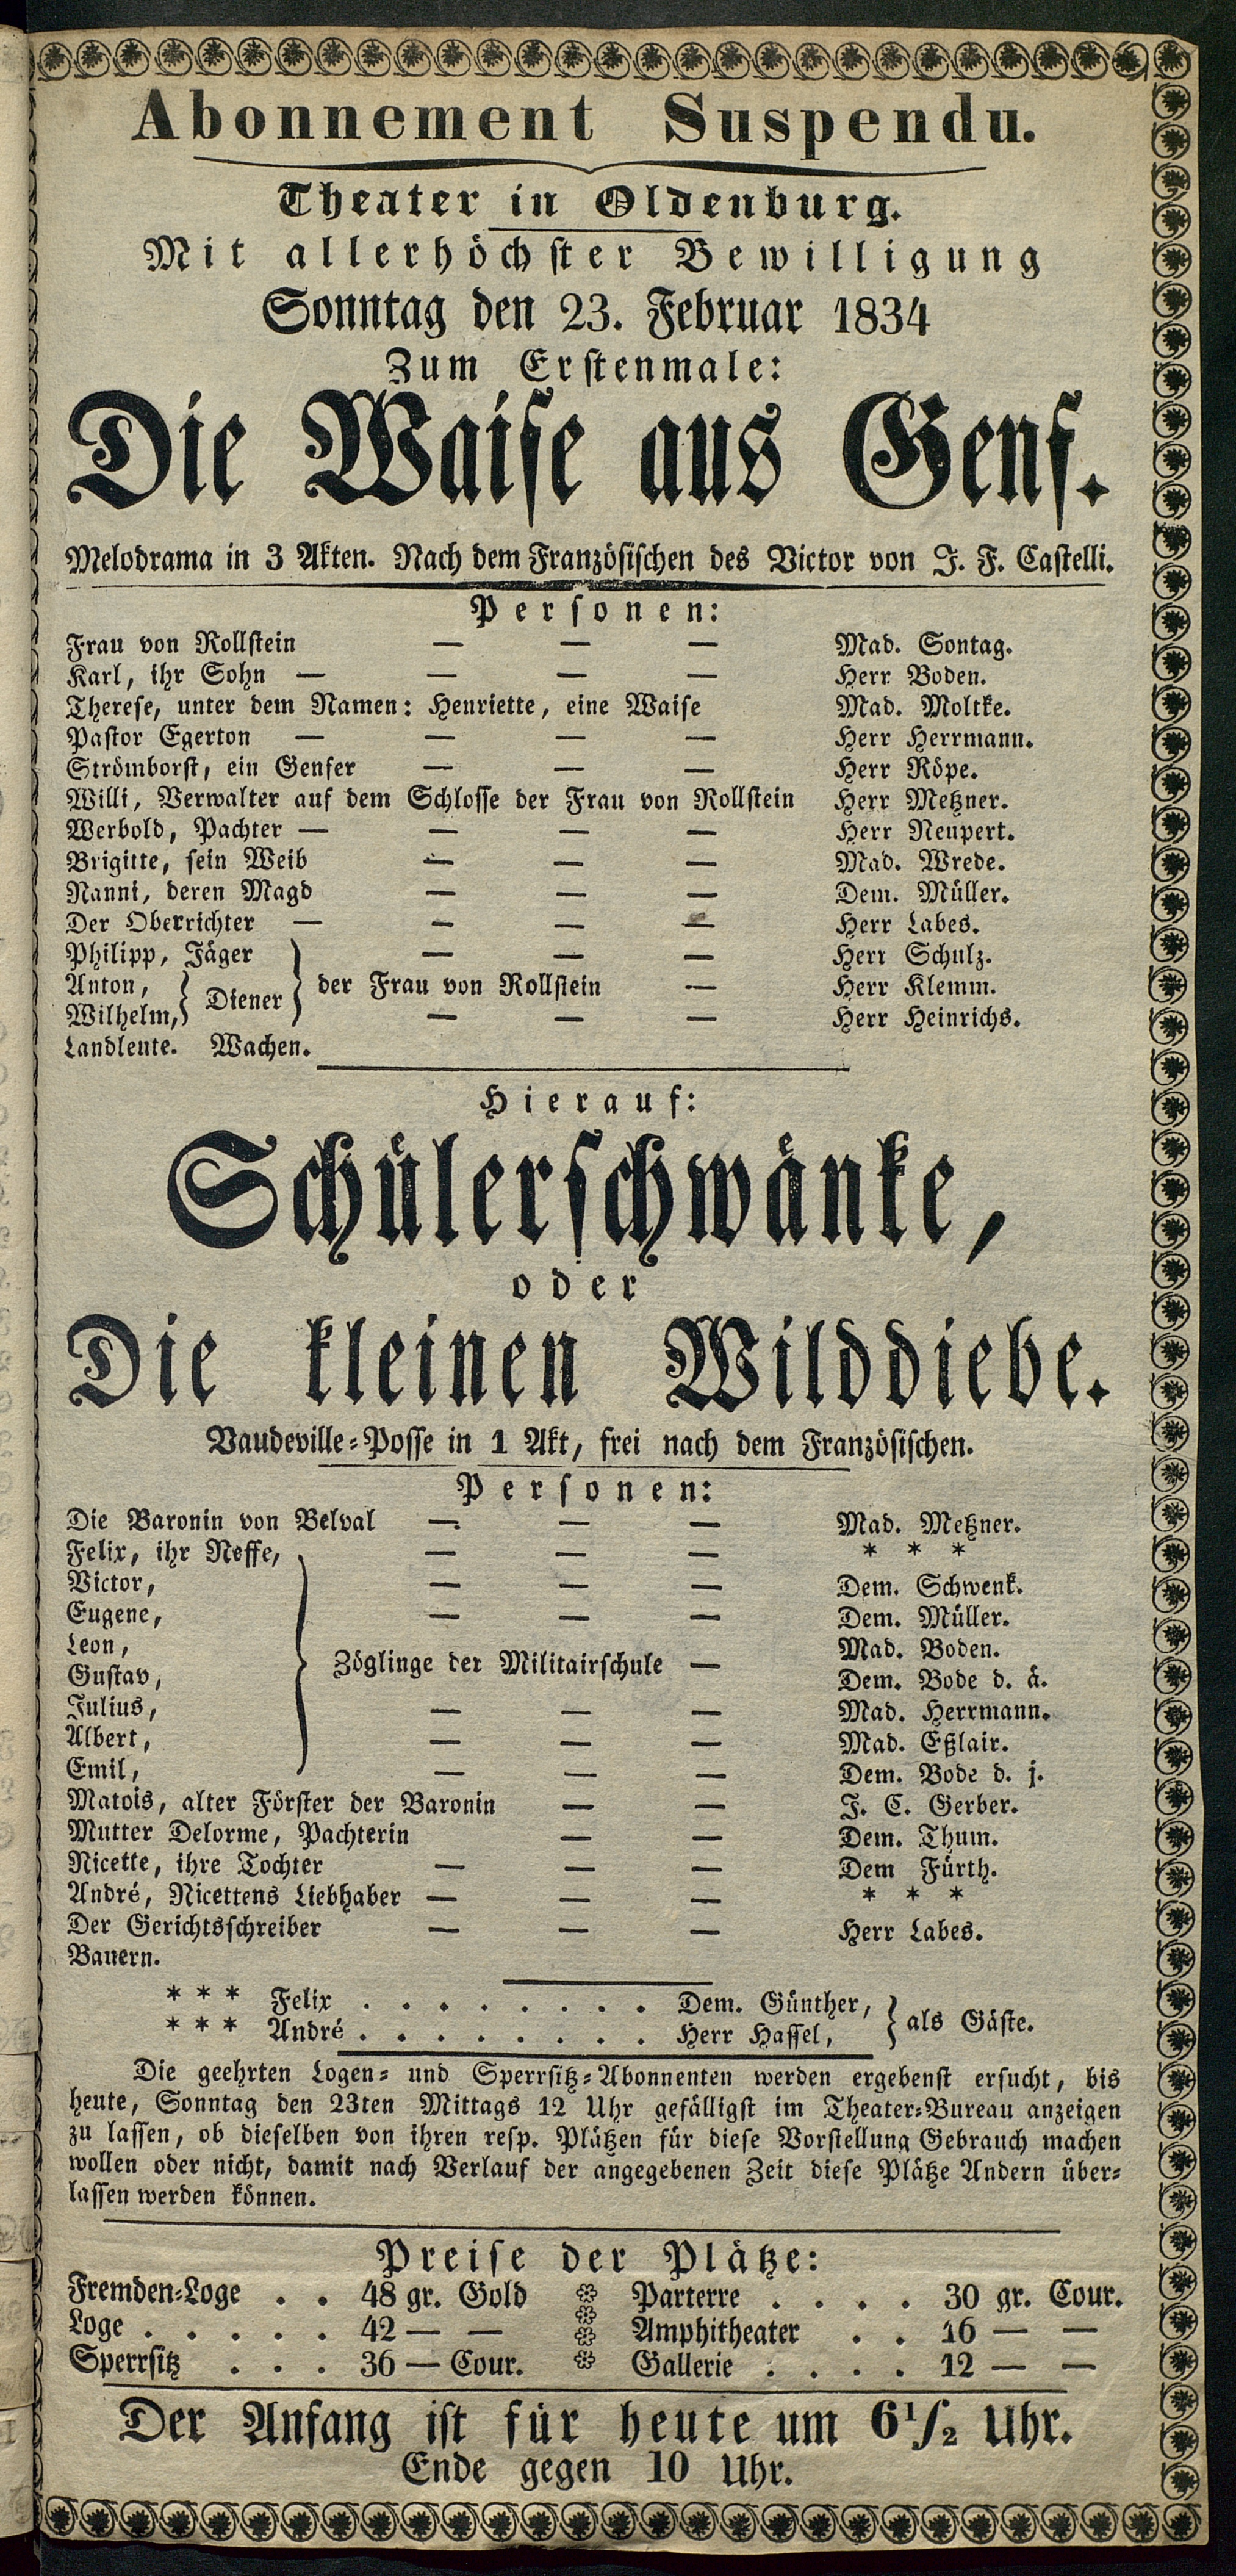 Abonnement Suspendu.
Theater in Oldenburg.
Mit allerhöchster Bewilligung
Sonntag den 23. Februar 1834
Zum Erstenmale:
Die Waise aus Genf.
Melodrama in 3 Akten. Nach dem Französischen des Victor von J. F. Castelli.
Personen:
Frau von Rollstein — — — Mad. Sontag.
Karl, ihr Sohn — — — — Herr Boden.
Therese, unter dem Namen: Henriette, eine Waise Mad. Moltke.
Pastor Egerton — — — — Herr Herrmann.
Strömborst, ein Genfer — — — Herr Röpe.
Willi, Verwalter auf dem Schlosse der Frau von Rollstein Herr Metzner.
Werbold, Pachter — — — — Herr Neupert.
Brigitte, sein Weib — — — Mad. Wrede.
Nanni, deren Magd — — — Dem. Müller.
Der Oberrichter — — — — Herr Labes.
Philipp, Jäger — — — Herr Schulz.
Anton, } Diener } der Frau von Rollstein — Herr Klemm.
Wilhelm, — — — Herr Heinrichs.
Landleute. Wachen.
Hierauf:
Schülerschwänke,
oder
Die kleinen Wilddiebe.
Vaudeville-Posse in 1 Akt, frei nach dem Französischen.
Personen:
Die Baronin von Belval — — — Mad. Metzner.
Felix, ihr Neffe, — — — * * *
Victor, — — — Dem. Schwenk.
Eugene, — — — Dem. Müller.
Leon, Mad. Boden.
Gustav, } Zöglinge der Militairschule — Dem. Bode d. ä.
Julius, — — — Mad. Herrmann.
Albert, — — — Mad. Eßlair.
Emil, — — — Dem. Bode d. j.
Matois, alter Förster der Baronin — — J. C. Gerber.
Mutter Delorme, Pachterin — — Dem. Thum.
Nicette, ihre Tochter — — — Dem Fürth.
André, Nicettens Liebhaber — — — * * *
Der Gerichtsschreiber — — — Herr Labes.
Bauern.
* * * Felix . . . . . . . . Dem. Günther, } als Gäste.
* * * André . . . . . . . . Herr Hassel,
Die geehrten Logen- und Sperrsitz-Abonnenten werden ergebenst ersucht, bis
heute, Sonntag den 23ten Mittags 12 Uhr gefälligst im Theater-Bureau anzeigen
zu lassen, ob dieselben von ihren resp. Plätzen für diese Vorstellung Gebrauch machen
wollen oder nicht, damit nach Verlauf der angegebenen Zeit diese Plätze Andern über-
lassen werden können.
Preise der Plätze:
Fremden-Loge . . 48 gr. Gold Parterre . . . . 30 gr. Cour.
Loge . . . . . 42 — — Amphitheater . . 16 — —
Sperrsitz . . . 36 — Cour. Gallerie . . . . 12 — —
Der Anfang ist für heute um 6 1/2 Uhr.
Ende gegen 10 Uhr.